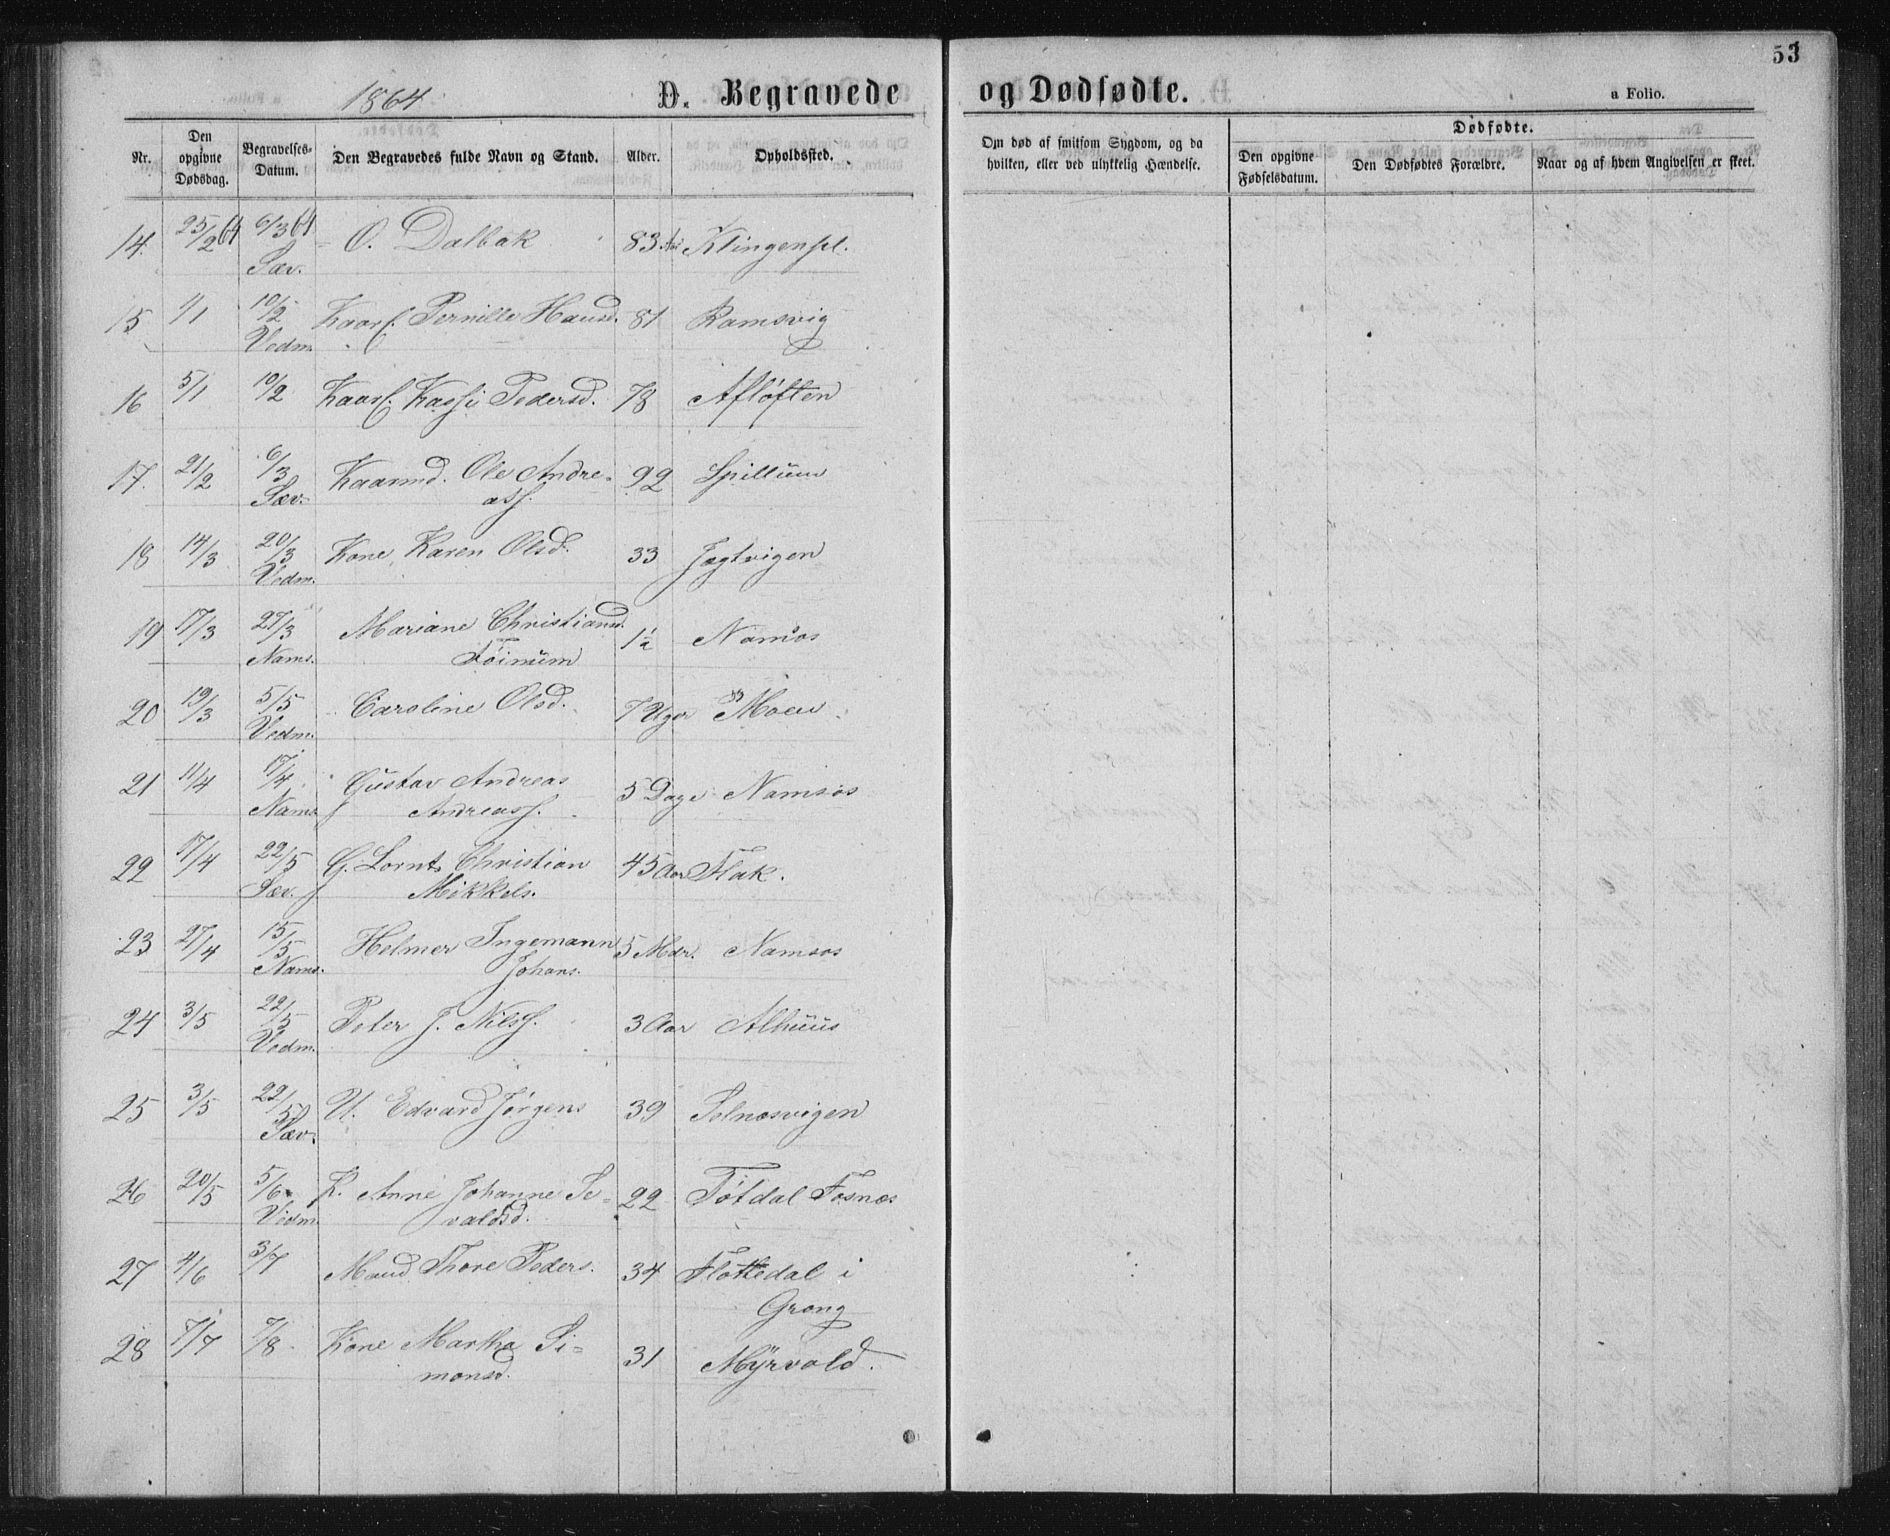 53
1864
D. Begravede og Dødfødte.
a Folio.
Nr.
Den opgivne Dødsdag.
Begravelses-Datum.
Den Begravedes fulde Navn og Stand.
Alder.
Opholdssted.
Om død af smitsom Sygdom, og da hvilken, eller ved ulykkelig Hændelse.
Dødfødte.
Den opgivne Fødselsdatum.
Den Dødfødtes Forældre.
Naar og af hvem Angivelsen er skeet.
14. 25/2 64 6/3 64 O. Dalbak 83 Klingenspl.
Sæv.
15 1/1 10/2 Kaarf. Pernille Hansd. 81 Ramsvig
Vedm.
16 5/1 10/2 Kaarf. Pedersd. 78 Afløften
17. 21/2 6/3 Kaarmd. Ole Andre- 92 Spillum
Sæv. ass.
18 14/3 20/3 Kone Karen Olsd. 33 Jagtvigen
Vedm.
19 17/3 27/3 Mariane Christiansd. 1½ Namsos
Nams. Føinum
20 19/3 5/5 Caroline Olsd. 7 Uger Moen
Vedm.
21 11/4 17/4 Gustav Andreas 5 Dage Namsos
Nams Andreass.
22 17/4 22/5 G. Lornts Christian 45 Aar Flak.
Sæv. Mikkels.
23 27/4 15/5 Helmer Ingemann 5 Mdr. Namsos
Nams. Johans.
24 3/5 22/5 Peter J. Nilss. 3 Aar Alhuus
Vedm.
25 3/5 22/5 U. Edvard Jørgens 39 Selnæsvigen
Sæv.
26 20/5 5/6 K. Anne Johanne Se- 22 Føtdal Fosnæs
Vedm. valdsd.
27 4/6 3/7 Mand Thore Peders. 34 Flottedal i
Grong
28 7/7 7/8 Kone Martha Si- 31 Myrvold.
monsd.